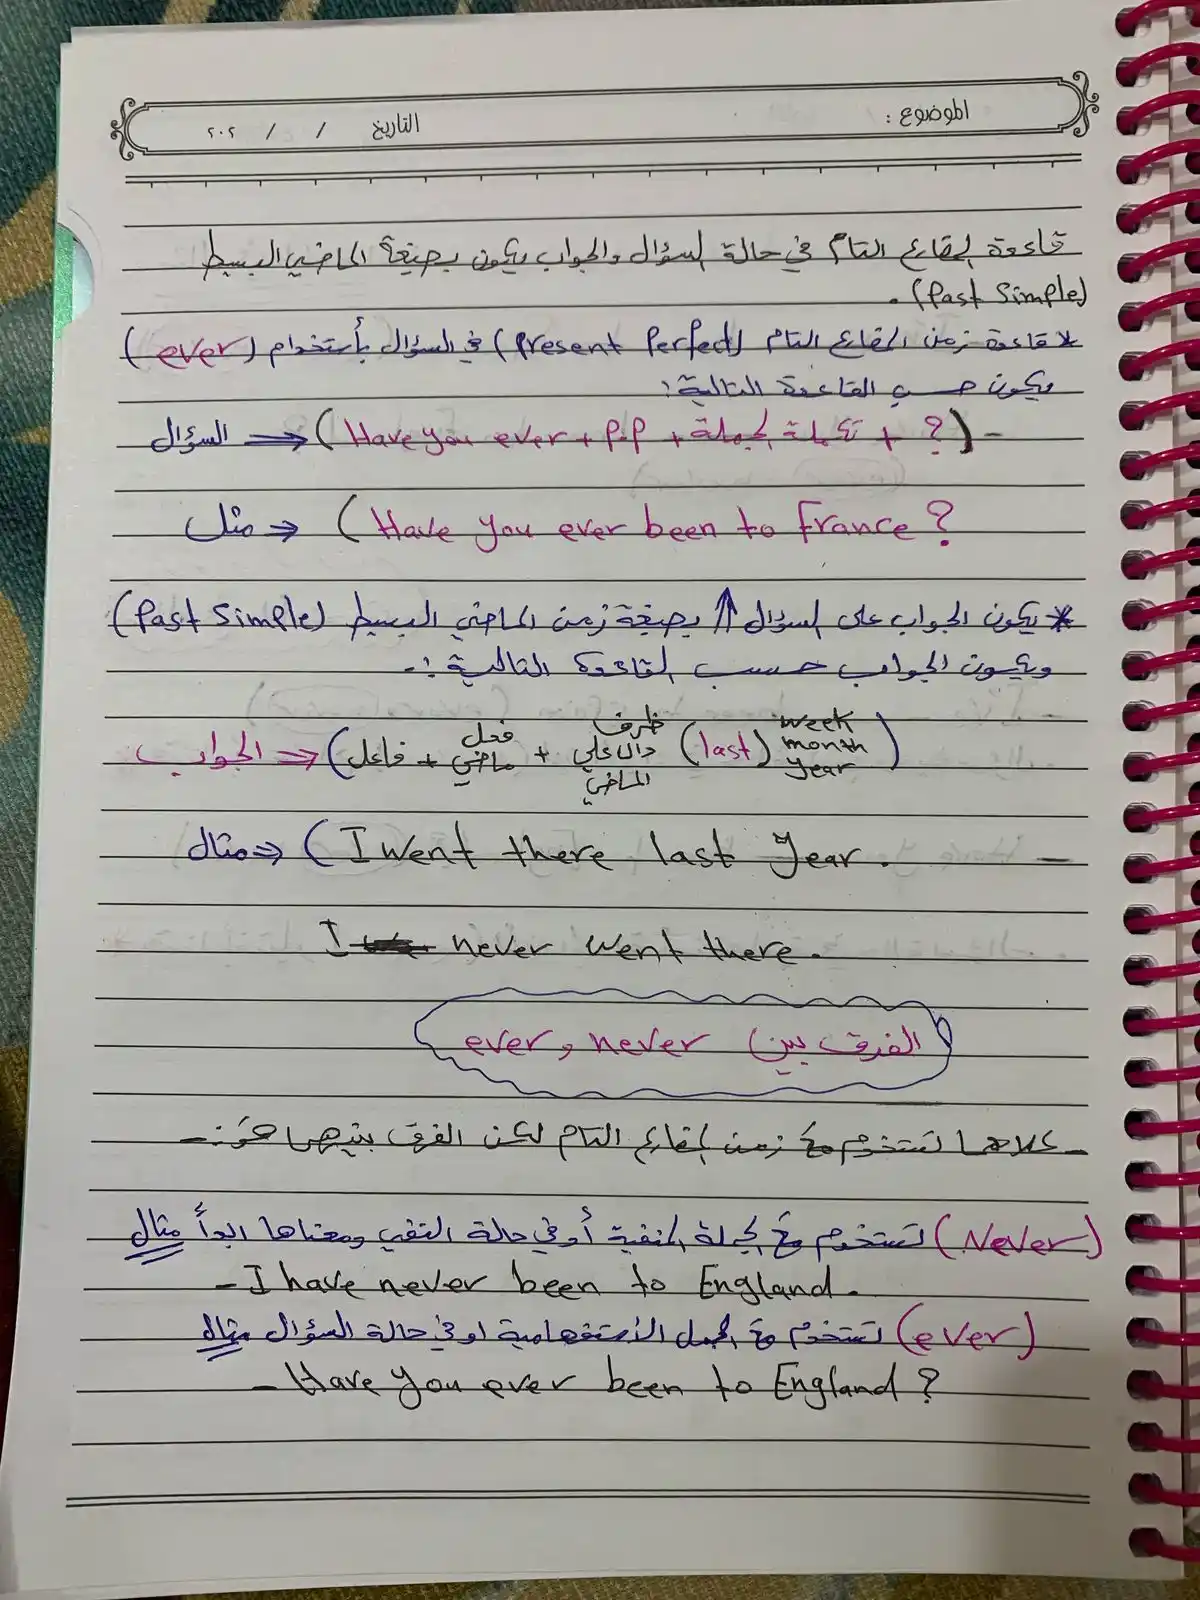 الموضوع :
التاريخ / / ٢٠٢
قاعدة المضارع التام في حالة السؤال والجواب يكون بصيغة الماضي البسيط
(Past Simple) .
* قاعدة زمن المضارع التام (Present Perfect) في السؤال بأستخدام (ever)
يكون حسب القاعدة التالية :
السؤال ⇐ (Have you ever + P.P + تكملة الجملة + ?) -
مثل ⇐ (Have you ever been to France ?
* يكون الجواب على السؤال ⇑ بصيغة زمن الماضي البسيط (Past Simple)
ويكون الجواب حسب القاعدة التالية :-
الجواب ⇐ (فاعل + فعل ماضي + ظرف دال على الماضي (last) week month year)
مثال ⇐ (I went there last year . -
I never went there .
الفرق بين ever و never
- كلاهما تستخدم مع زمن المضارع التام لكن الفرق بينهما هو :-
(Never) تستخدم مع الجملة المنفية أو في حالة النفي ومعناها ابداً مثال
- I have never been to England .
(ever) تستخدم مع الجمل الأستفهامية او في حالة السؤال مثال
- Have you ever been to England ?